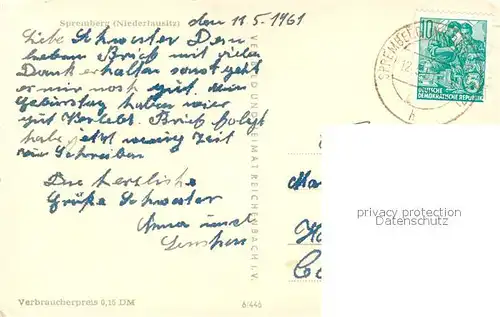 Spremberg (Niederlausitz)
den 11.5.1961
Liebe Schwester Dein
lieben Brief mit vielen
Dank erhalten sonst geht
es mir noch gut. den
Geburstag haben wier
gut Verlebt. Brief folgt
habe jetzt wenig Zeit
zum Schreiben
Die herzliche
Grüße Schwester
Anna und
VERLAG BILD UND HEIMAT REICHENBACH I. V.
SPREMBERG
12.
h
10
DEUTSCHE
DEMOKRATISCHE REPUBLIK
privacy protection
Datenschutz
Verbraucherpreis 0,15 DM
6/446